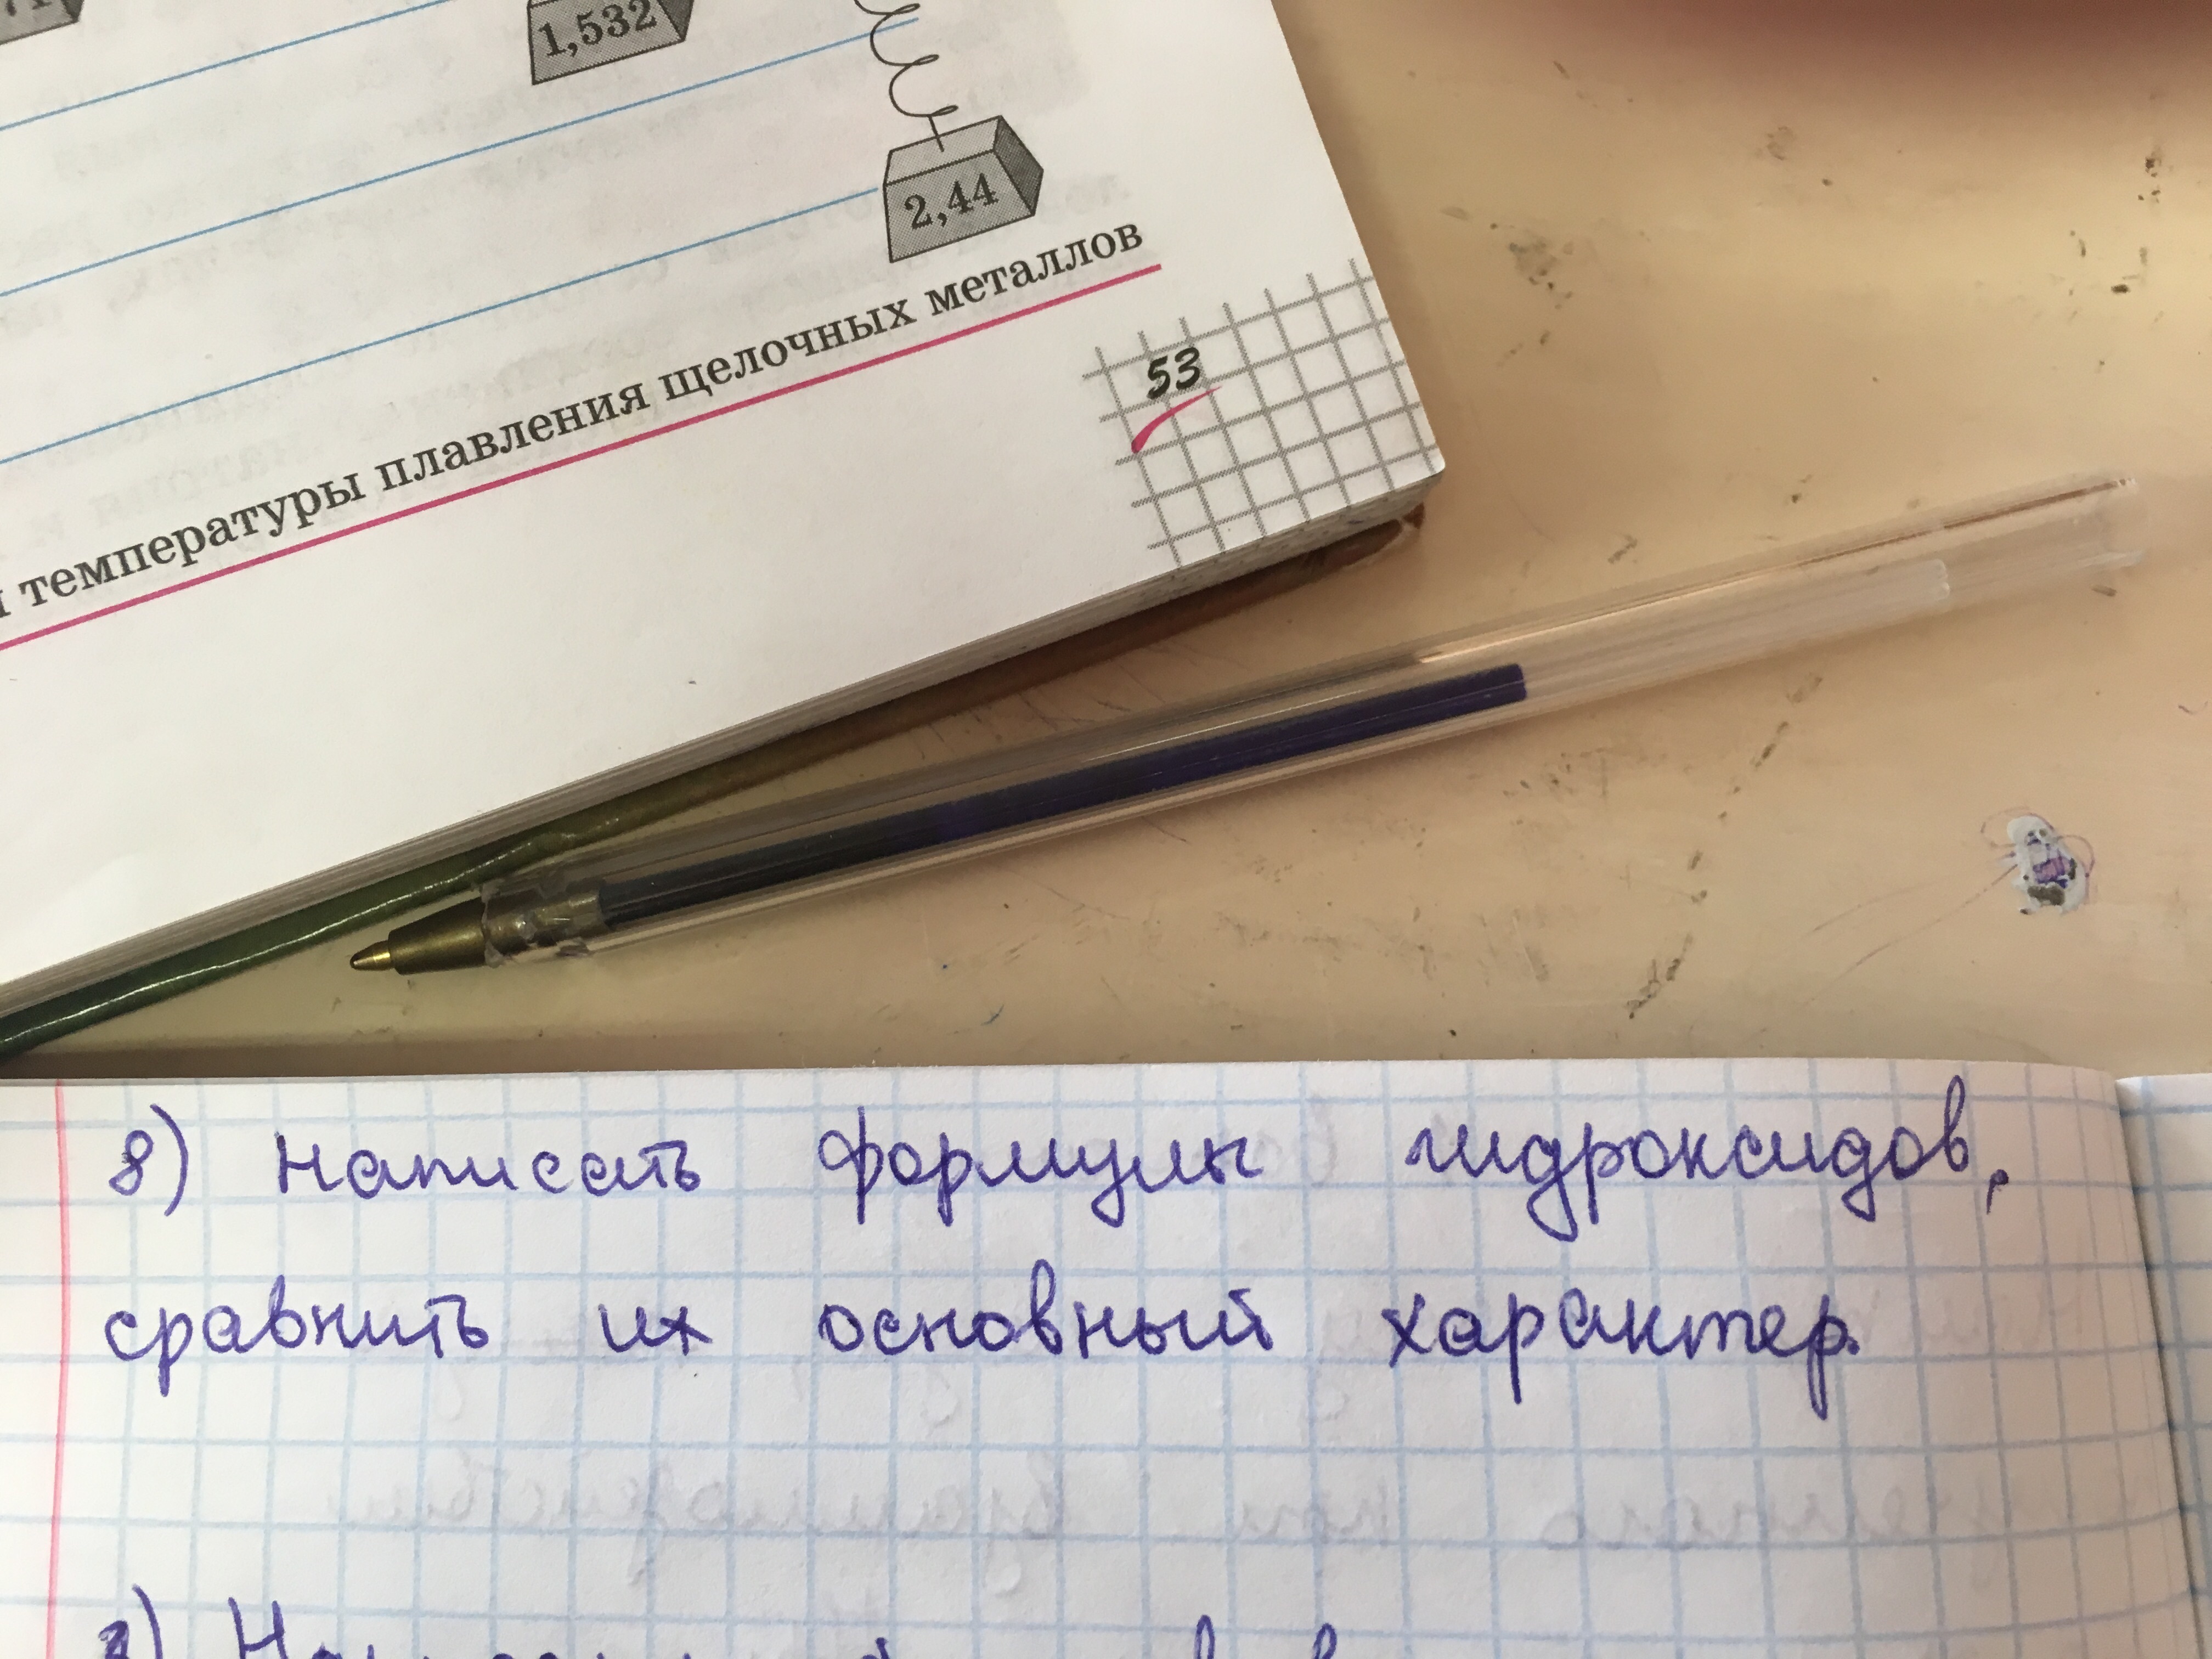 1,532
2,44
температуры плавления щелочных металлов
53
8) Написать формулы гидроксидов,
сравнить их основный характер.